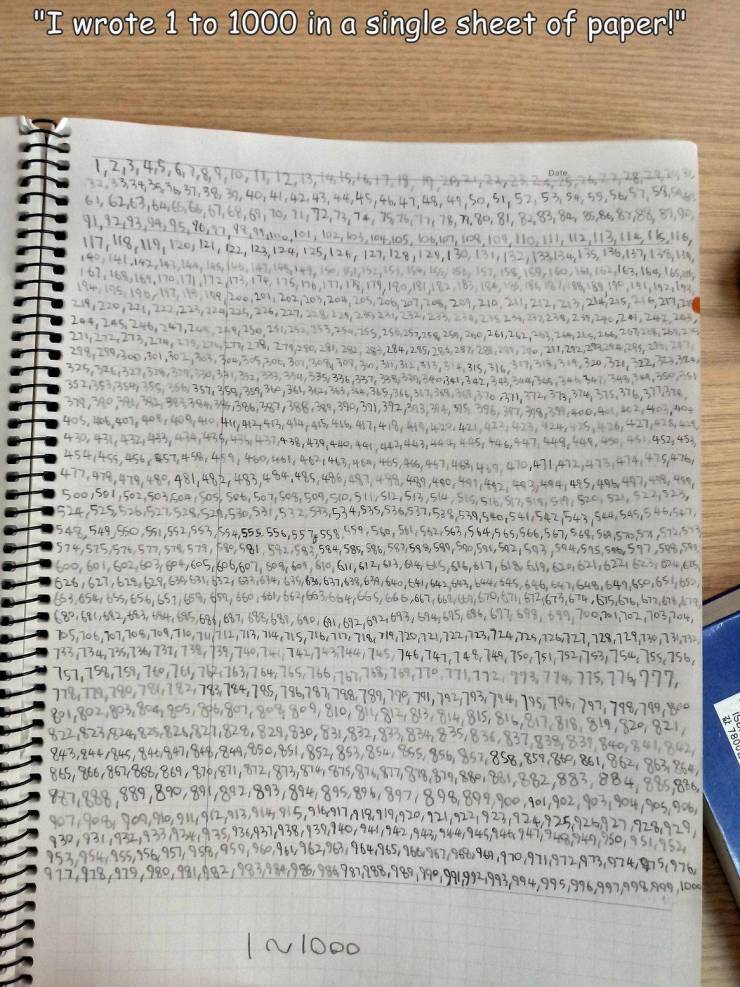 "I wrote 1 to 1000 in a single sheet of paper!"
Date
1,2,3,4,5,6,7,8,9,10,11,12,13,14,15,16,17,18,19,20,21,22,23,24,25,26,27,28,29,30,31,
32,33,34,35,36,37,38,39,40,41,42,43,44,45,46,47,48,49,50,51,52,53,54,55,56,57,58,59,60,
61,62,63,64,65,66,67,68,69,70,71,72,73,74,75,76,77,78,79,80,81,82,83,84,85,86,87,88,89,90,
91,92,93,94,95,96,97,98,99,100,101,102,103,104,105,106,107,108,109,110,111,112,113,114,115,116,
117,118,119,120,121,122,123,124,125,126,127,128,129,130,131,132,133,134,135,136,137,138,139,
140,141,142,143,144,145,146,147,148,149,150,151,152,153,154,155,156,157,158,159,160,161,162,163,164,165,166,
167,168,169,170,171,172,173,174,175,176,177,178,179,180,181,182,183,184,185,186,187,188,189,190,191,192,193,
194,195,196,197,198,199,200,201,202,203,204,205,206,207,208,209,210,211,212,213,214,215,216,217,218
219,220,221,222,223,224,225,226,227,228,229,230,231,232,233,234,235,236,237,238,239,240,241,242,243,
244,245,246,247,248,249,250,251,252,253,254,255,256,257,258,259,260,261,262,263,264,265,266,267,268,269,270
271,272,273,274,275,276,277,278,279,280,281,282,283,284,285,286,287,288,289,290,291,292,293,294,295,296,297,
298,299,300,301,302,303,304,305,306,307,308,309,310,311,312,313,314,315,316,317,318,319,320,321,322,323,324,
325,326,327,328,329,330,331,332,333,334,335,336,337,338,339,340,341,342,343,344,345,346,347,348,349,350,351
352,353,354,355,356,357,358,359,360,361,362,363,364,365,366,367,368,369,370,371,372,373,374,375,376,377,378,
379,380,381,382,383,384,385,386,387,388,389,390,391,392,393,394,395,396,397,398,399,400,401,402,403,404
405,406,407,408,409,410,411,412,413,414,415,416,417,418,419,420,421,422,423,424,425,426,427,428,429
430,431,432,433,434,435,436,437,438,439,440,441,442,443,444,445,446,447,448,449,450,451,452,453
454,455,456,457,458,459,460,461,462,463,464,465,466,467,468,469,470,471,472,473,474,475,476,
477,478,479,480,481,482,483,484,485,486,487,488,489,490,491,492,493,494,495,496,497,498,499,
500,501,502,503,504,505,506,507,508,509,510,511,512,513,514,515,516,517,518,519,520,521,522,523,
524,525,526,527,528,529,530,531,532,533,534,535,536,537,538,539,540,541,542,543,544,545,546,547,
548,549,550,551,552,553,554,555,556,557,558,559,560,561,562,563,564,565,566,567,568,569,570,571,572,573
574,575,576,577,578,579,580,581,582,583,584,585,586,587,588,589,590,591,592,593,594,595,596,597,598,599
600,601,602,603,604,605,606,607,608,609,610,611,612,613,614,615,616,617,618,619,620,621,622,623,624,625
626,627,628,629,630,631,632,633,634,635,636,637,638,639,640,641,642,643,644,645,646,647,648,649,650,651,652,
653,654,655,656,657,658,659,660,661,662,663,664,665,666,667,668,669,670,671,672,673,674,675,676,677,678,679
680,681,682,683,684,685,686,687,688,689,690,691,692,693,694,695,696,697,698,699,700,701,702,703,704,
705,706,707,708,709,710,711,712,713,714,715,716,717,718,719,720,721,722,723,724,725,726,727,728,729,730,731,732,
733,734,735,736,737,738,739,740,741,742,743,744,745,746,747,748,749,750,751,752,753,754,755,756,
757,758,759,760,761,762,763,764,765,766,767,768,769,770,771,772,773,774,775,776,777,
778,779,780,781,782,783,784,785,786,787,788,789,790,791,792,793,794,795,796,797,798,799,800
801,802,803,804,805,806,807,808,809,810,811,812,813,814,815,816,817,818,819,820,821,
822,823,824,825,826,827,828,829,830,831,832,833,834,835,836,837,838,839,840,841,842,
843,844,845,846,847,848,849,850,851,852,853,854,855,856,857,858,859,860,861,862,863,864,
865,866,867,868,869,870,871,872,873,874,875,876,877,878,879,880,881,882,883,884,885,886,
887,888,889,890,891,892,893,894,895,896,897,898,899,900,901,902,903,904,905,906,
907,908,909,910,911,912,913,914,915,916,917,918,919,920,921,922,923,924,925,926,927,928,929,
930,931,932,933,934,935,936,937,938,939,940,941,942,943,944,945,946,947,948,949,950,951,952,
953,954,955,956,957,958,959,960,961,962,963,964,965,966,967,968,969,970,971,972,973,974,975,976,
977,978,979,980,981,982,983,984,985,986,987,988,989,990,991,992,993,994,995,996,997,998,999,1000
1~1000